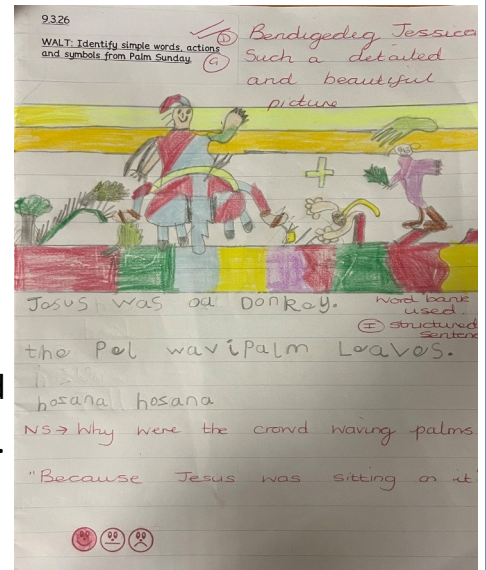 9.3.26
WALT: Identify simple words, actions
and symbols from Palm Sunday.
D
G
Bendigedig Jessica
Such a detailed
and beautiful
picture
Jesus was oa Donkey.
word bank
used.
I structured
sentenc
the Pel wavi Palm Leaves.
hosana hosana
NS → Why were the crowd waving palms
"Because Jesus was sitting on it"